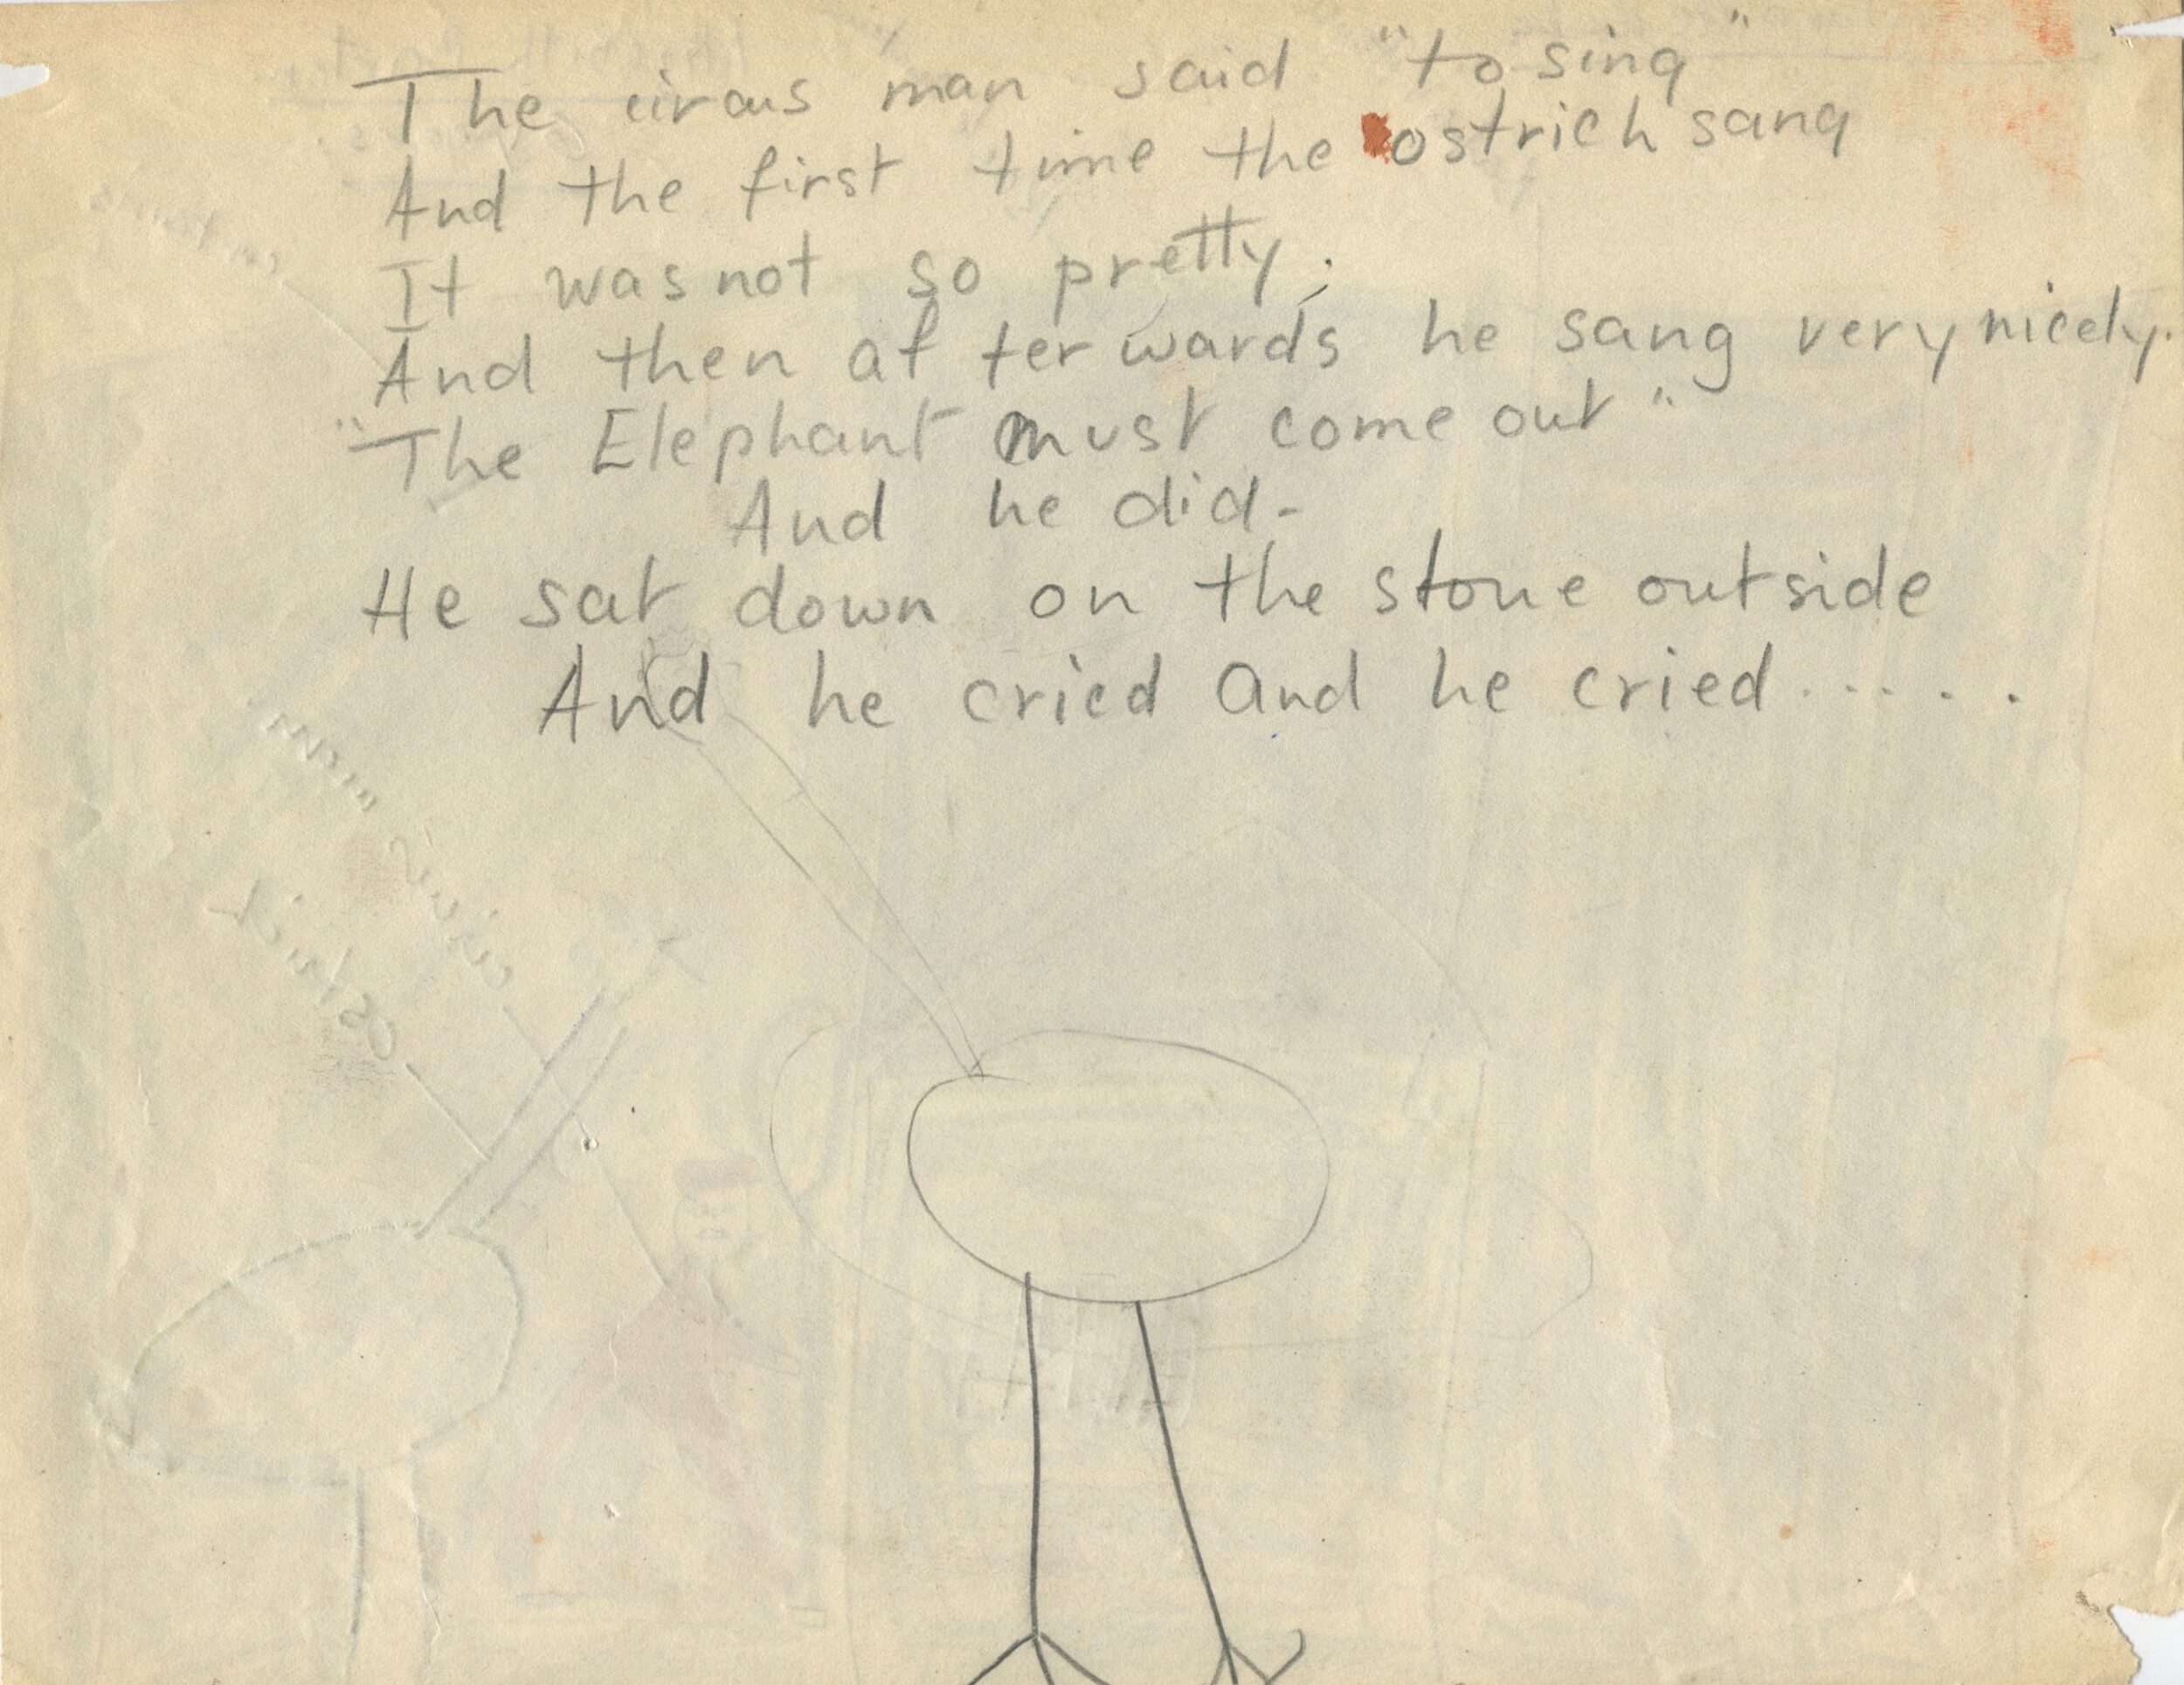 The circus man said "to sing"
And the first time the ostrich sang
It was not so pretty;
And then afterwards he sang very nicely.
"The Elephant must come out"
And he did-
He sat down on the stone outside
And he cried and he cried.....
circus man
ostrich